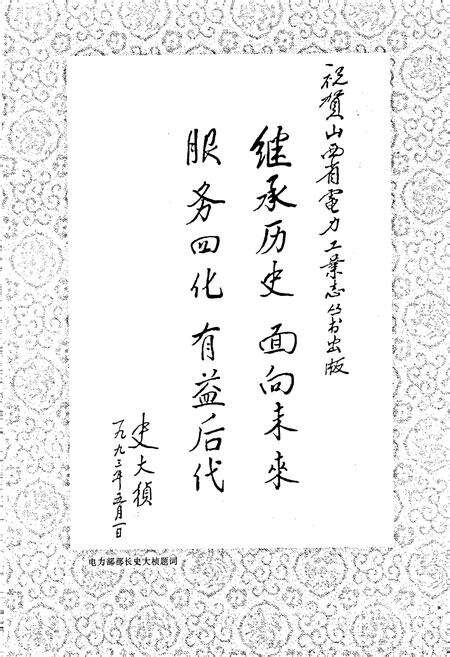 祝贺山西省電力工業志丛书出版
继承历史 面向未來
服务四化 有益后代
史大楨
一九九三年五月一日
电力部部长史大桢题词